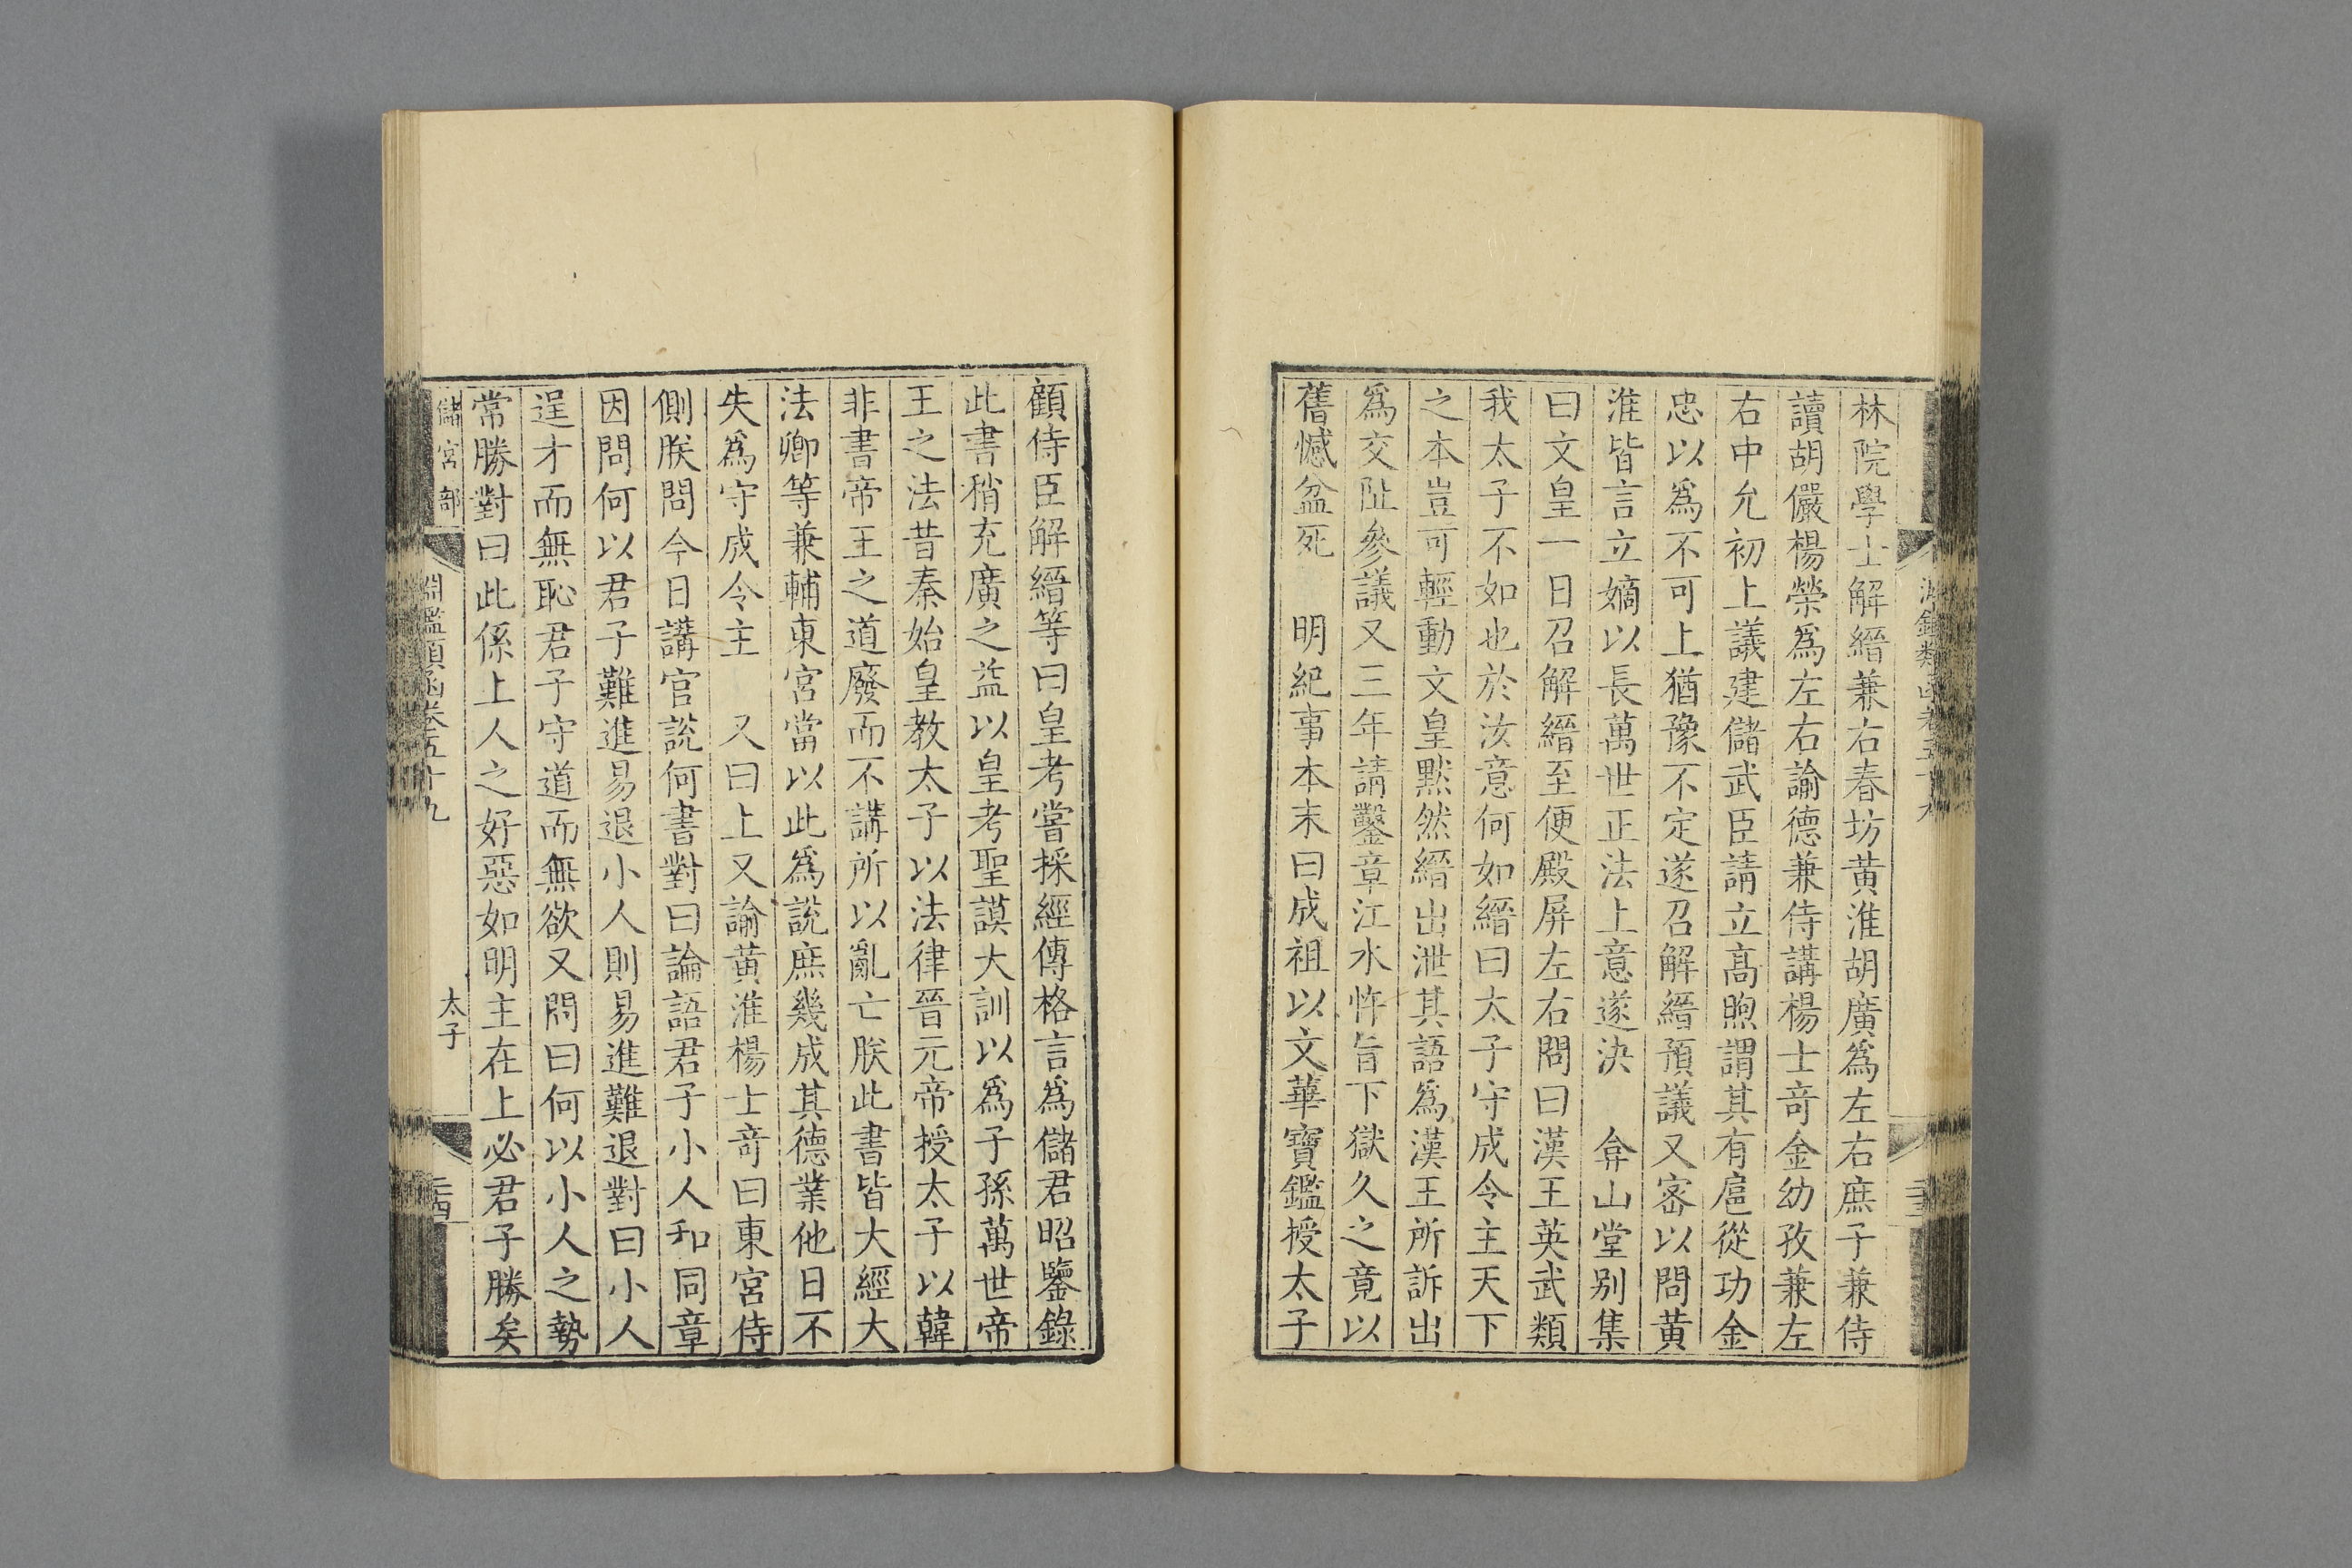 林院學士解縉兼右春坊黃淮胡廣爲左右庶子兼侍
讀胡儼楊榮爲左右諭德兼侍講楊士竒金幼孜兼左
右中允初上議建儲武臣請立髙煦謂其有扈從功金
忠以爲不可上猶豫不定遂召解縉預議又宻以問黃
淮皆言立嫡以長萬世正法上意遂決　弇山堂别集
曰文皇一日召解縉至便殿屏左右問曰漢王英武類
我太子不如也於汝意何如縉曰太子守成令主天下
之本豈可輕動文皇黙然縉出泄其語爲漢王所訴出
爲交阯參議又三年請鑿章江水忤旨下獄久之竟以
舊憾盆死　明紀事本末曰成祖以文華寶鑑授太子
顧侍臣解縉等曰皇考嘗採經傳格言爲儲君昭鑒錄
此書稍充廣之益以皇考聖謨大訓以爲子孫萬世帝
王之法昔秦始皇教太子以法律晉元帝授太子以韓
非書帝王之道廢而不講所以亂亡朕此書皆大經大
法卿等兼輔東宮當以此爲說庶幾成其德業他日不
失爲守成令主　又曰上又諭黃淮楊士竒曰東宮侍
側朕問今日講官說何書對曰論語君子小人和同章
因問何以君子難進易退小人則易進難退對曰小人
逞才而無恥君子守道而無欲又問曰何以小人之勢
常勝對曰此係上人之好惡如明主在上必君子勝矣
儲宮部
淵鑑類函卷五十九
太子